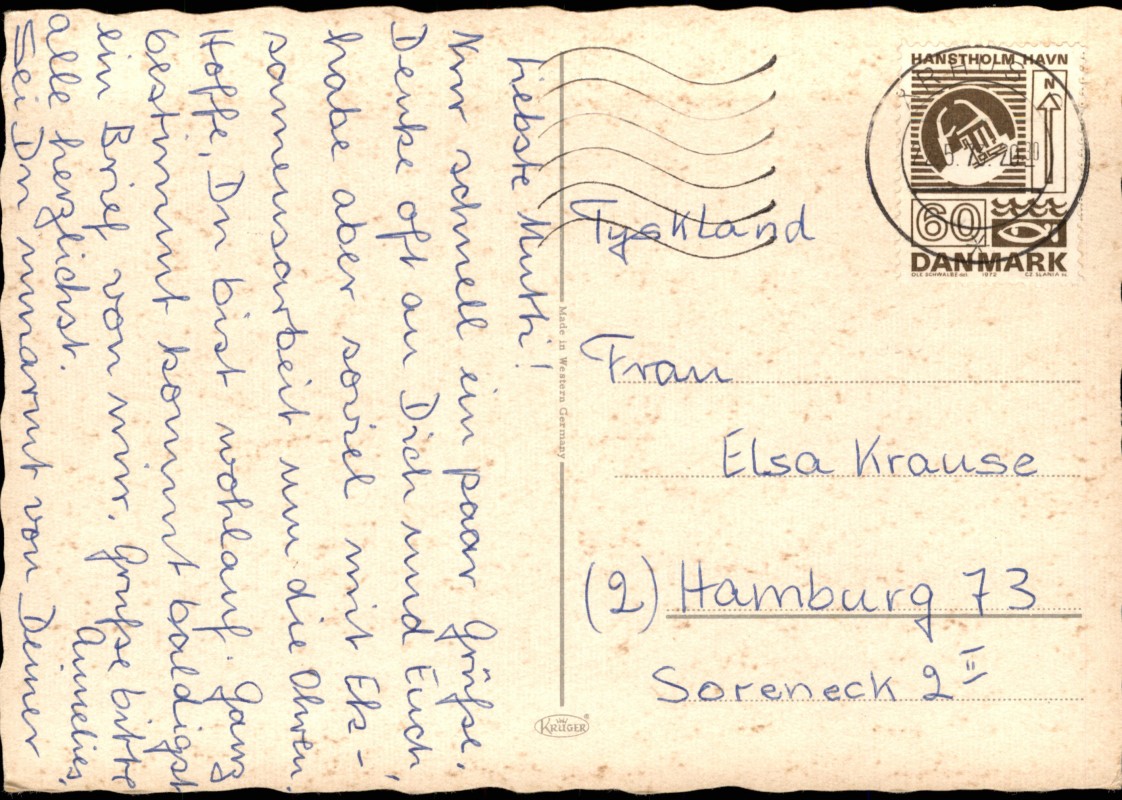 Liebste Mutti!
Nur schnell ein paar Grüße.
Denke oft an Dich und Euch,
habe aber soviel mit Ek-
samensarbeit um die Ohren.
Hoffe, Du bist wohlauf. Ganz
bestimmt kommt baldigst
ein Brief von mir. Grüße bitte
alle herzlichst.
Sei Du umarmt von Deiner
Annelies.
Made in Western Germany
KRÜGER
HANSTHOLM HAVN
N
60
DANMARK
OLE SCHWALBE del. 1972 CZ SLANIA sc.
Tyskland
Frau
Elsa Krause
(2) Hamburg 73
Soreneck 2 II